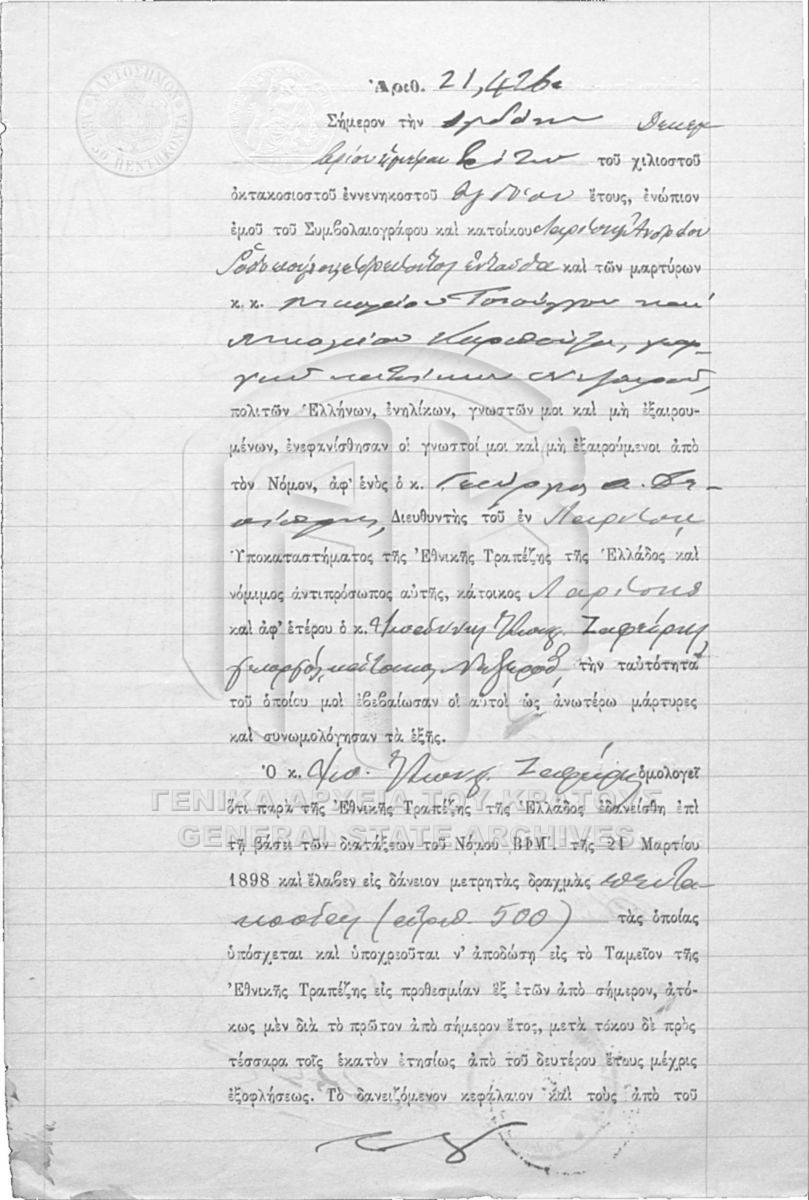 ΧΑΡΤΟΣΗΜΟΝ
ΛΕΠ. 50 ΠΕΝΤΗΚΟΝΤΑ
Ἀριθ. 21,426
Σήμερον τὴν ὀγδόην Δεκεμ
βρίου ἡμέραν Τρίτην τοῦ χιλιοστοῦ
ὀκτακοσιοστοῦ ἐννενηκοστοῦ ὀγδόου ἔτους, ἐνώπιον
ἐμοῦ τοῦ Συμβολαιογράφου καὶ κατοίκου Λαρίσσης Ἀνδρέου
ἐνταῦθα καὶ τῶν μαρτύρων
κ. κ. Νικολάου καὶ
Νικολάου γεωρ-
γῶν κατοίκων Νεζεροῦ,
πολιτῶν Ἑλλήνων, ἐνηλίκων, γνωστῶν μοι καὶ μὴ ἐξαιρου-
μένων, ἐνεφανίσθησαν οἱ γνωστοί μοι καὶ μὴ ἐξαιρούμενοι ἀπὸ
τὸν Νόμον, ἀφ' ἑνὸς ὁ κ. Γεώργιος Α.
Διευθυντὴς τοῦ ἐν Λαρίσσῃ
Ὑποκαταστήματος τῆς Ἐθνικῆς Τραπέζης τῆς Ἑλλάδος καὶ
νόμιμος ἀντιπρόσωπος αὐτῆς, κάτοικος Λαρίσσης
καὶ ἀφ' ἑτέρου ὁ κ. Ζαφείρης
γεωργός, κάτοικος Νεζεροῦ, τὴν ταὐτότητα
τοῦ ὁποίου μοὶ ἐβεβαίωσαν οἱ αὐτοὶ ὡς ἀνωτέρω μάρτυρες
καὶ συνωμολόγησαν τὰ ἑξῆς.
Ὁ κ. Ζαφείρης ὁμολογεῖ
ΓΕΝΙΚΑ ΑΡΧΕΙΑ ΤΟΥ ΚΡΑΤΟΥΣ
ὅτι παρὰ τῆς Ἐθνικῆς Τραπέζης τῆς Ἑλλάδος ἐδανείσθη ἐπὶ
GENERAL STATE ARCHIVES
τῇ βάσει τῶν διατάξεων τοῦ Νόμου ΒΦΜ'. τῆς 21 Μαρτίου
1898 καὶ ἔλαβεν εἰς δάνειον μετρητὰς δραχμὰς πεντα-
κοσίας (ἀριθ. 500) τὰς ὁποίας
ὑπόσχεται καὶ ὑποχρεοῦται ν' ἀποδώσῃ εἰς τὸ Ταμεῖον τῆς
Ἐθνικῆς Τραπέζης εἰς προθεσμίαν ἓξ ἐτῶν ἀπὸ σήμερον, ἀτό-
κως μὲν διὰ τὸ πρῶτον ἀπὸ σήμερον ἔτος, μετὰ τόκου δὲ πρὸς
τέσσαρα τοῖς ἑκατὸν ἐτησίως ἀπὸ τοῦ δευτέρου ἔτους μέχρις
ἐξοφλήσεως. Τὸ δανειζόμενον κεφάλαιον καὶ τοὺς ἀπὸ τοῦ